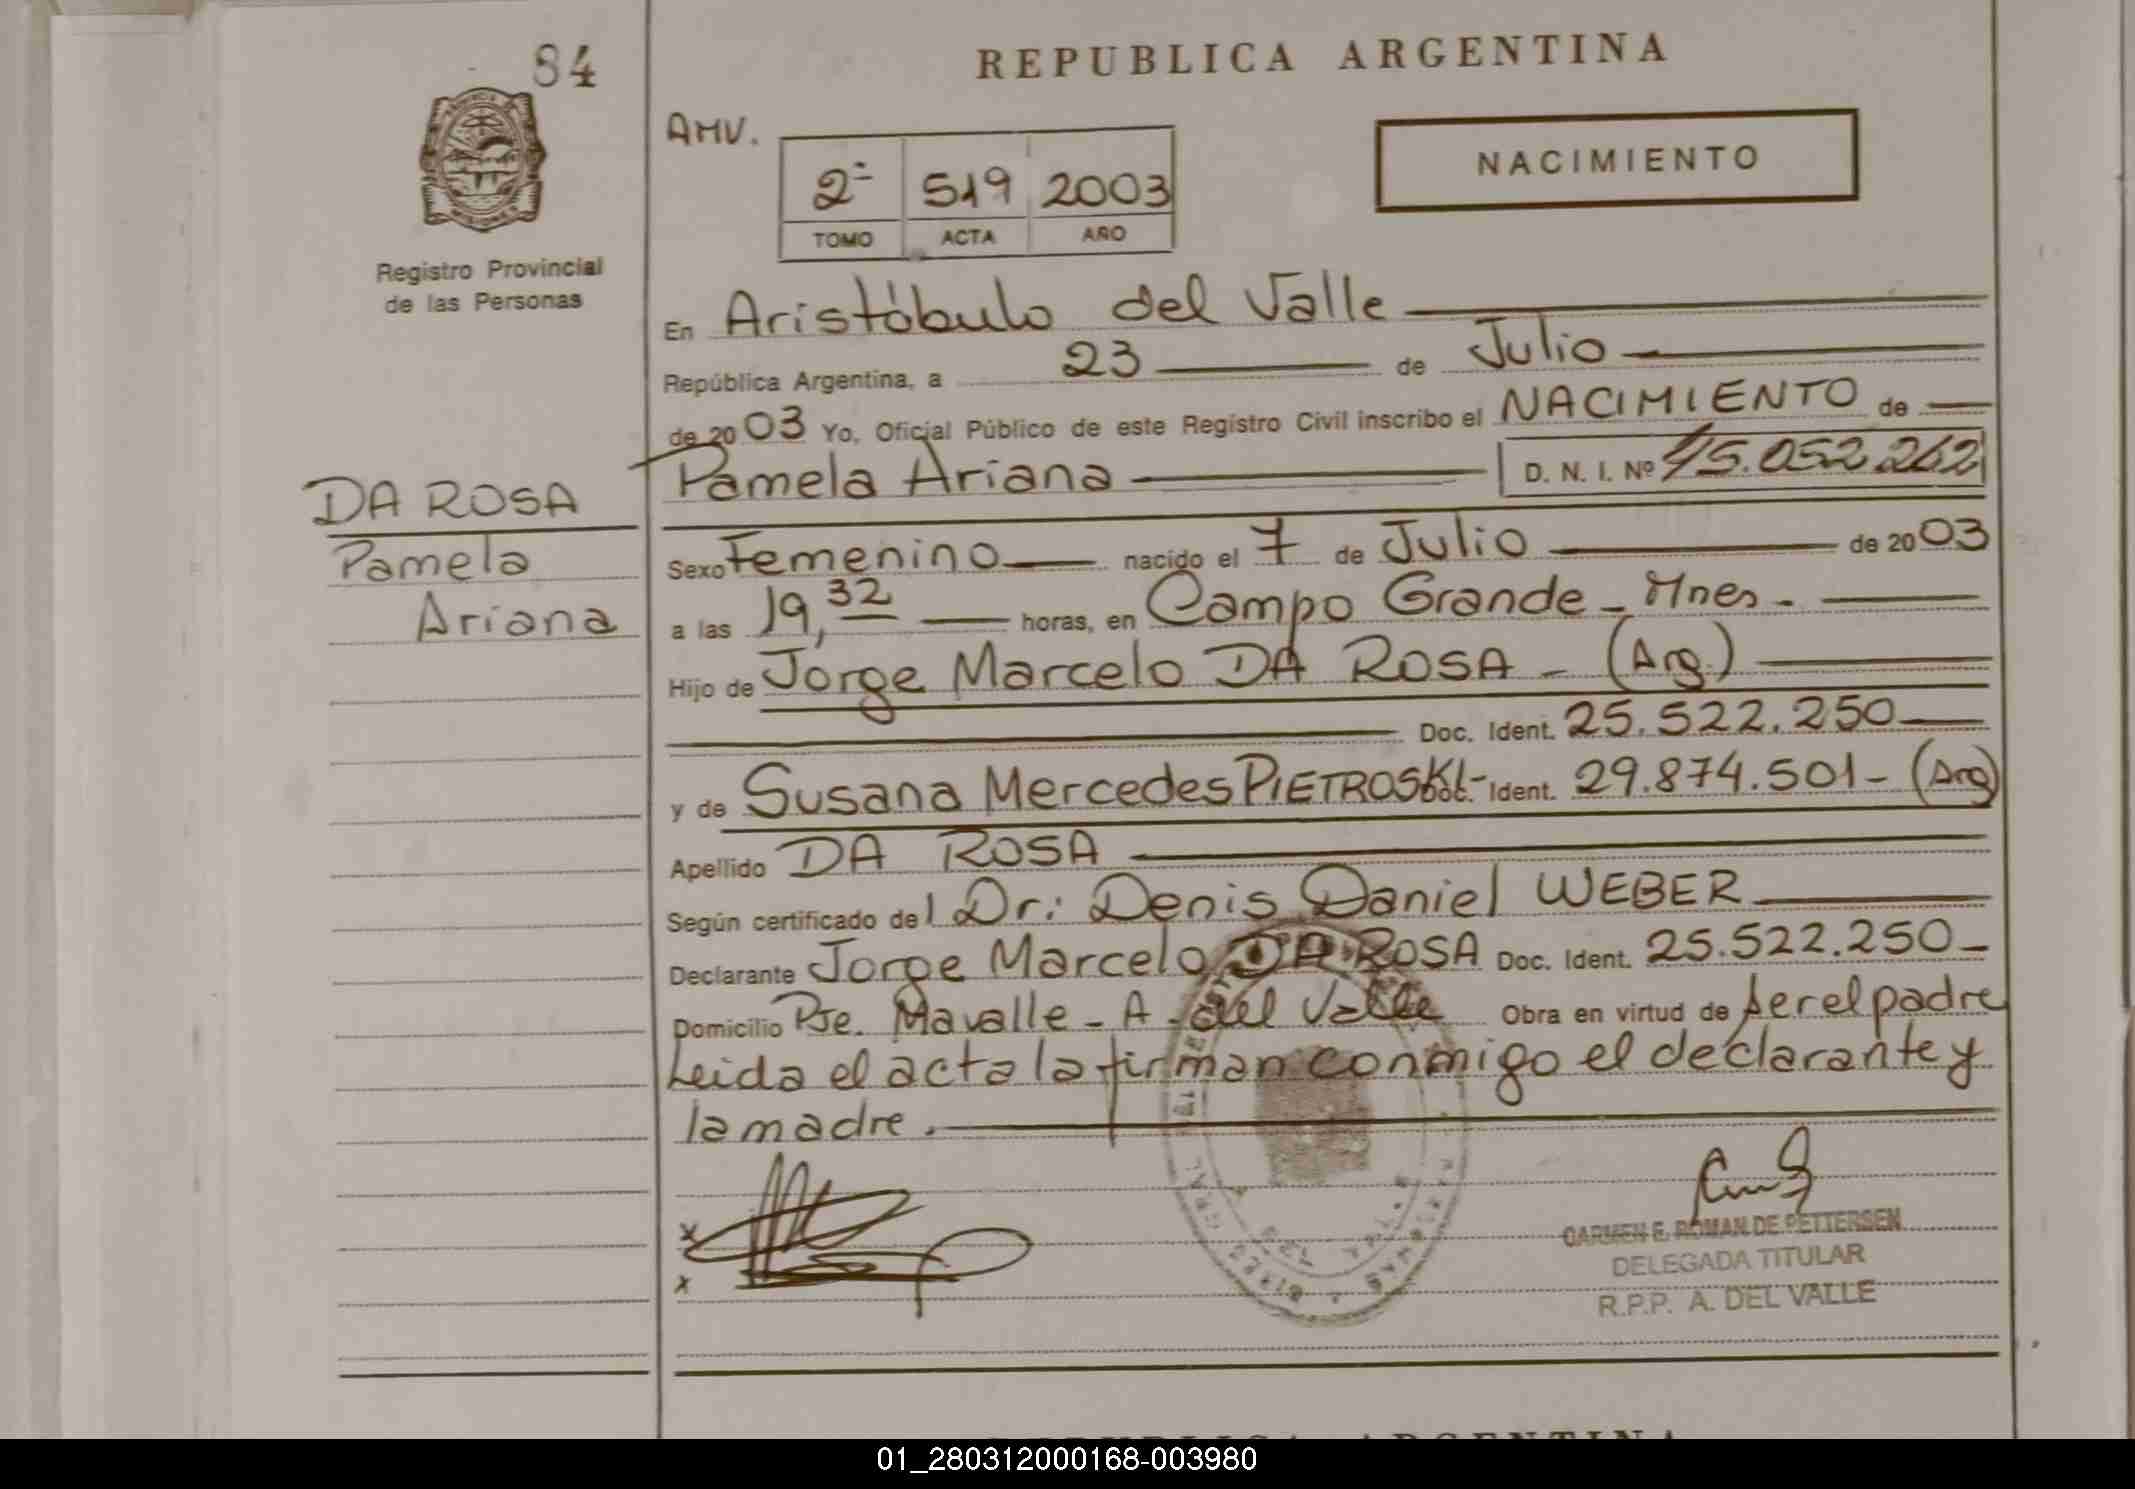 84
REPUBLICA ARGENTINA
AMV.
2º 519 2003
TOMO ACTA AÑO
NACIMIENTO
Registro Provincial
de las Personas
En Aristóbulo del Valle
República Argentina, a 23 de Julio
de 2003 Yo, Oficial Público de este Registro Civil inscribo el NACIMIENTO de
Pamela Ariana D. N. I. Nº 45.052.262
DA ROSA
Pamela
Ariana
Sexo Femenino nacido el 7 de Julio de 2003
a las 19,32 horas, en Campo Grande - Mnes -
Hijo de Jorge Marcelo DA ROSA - (Arg.)
Doc. Ident. 25.522.250
y de Susana Mercedes PIETROSKI - Doc. Ident. 29.874.501 - (Arg)
Apellido DA ROSA
Según certificado del Dr: Denis Daniel WEBER
Declarante Jorge Marcelo DA ROSA Doc. Ident. 25.522.250 -
Domicilio Pje. Mavalle - A. del Valle Obra en virtud de ser el padre
Leida el acta la firman conmigo el declarante y
la madre.
x
x
CARMEN E. ROMAN DE PETTERSEN
DELEGADA TITULAR
R.P.P. A. DEL VALLE
01_280312000168-003980